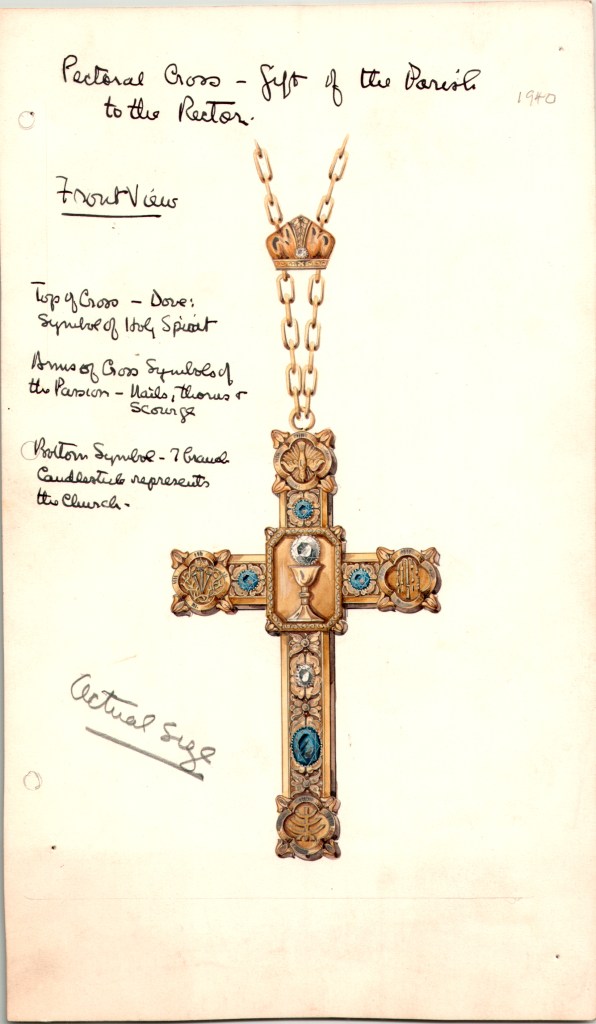 Pectoral Cross – Gift of the Parish
to the Rector.
1940
Front View
Top of Cross – Dove:
Symbol of Holy Spirit
Arms of Cross Symbols of
the Passion – Nails, thorns &
Scourge
Bottom Symbol – 7 branch
Candlestick represents
the Church –
Actual Size